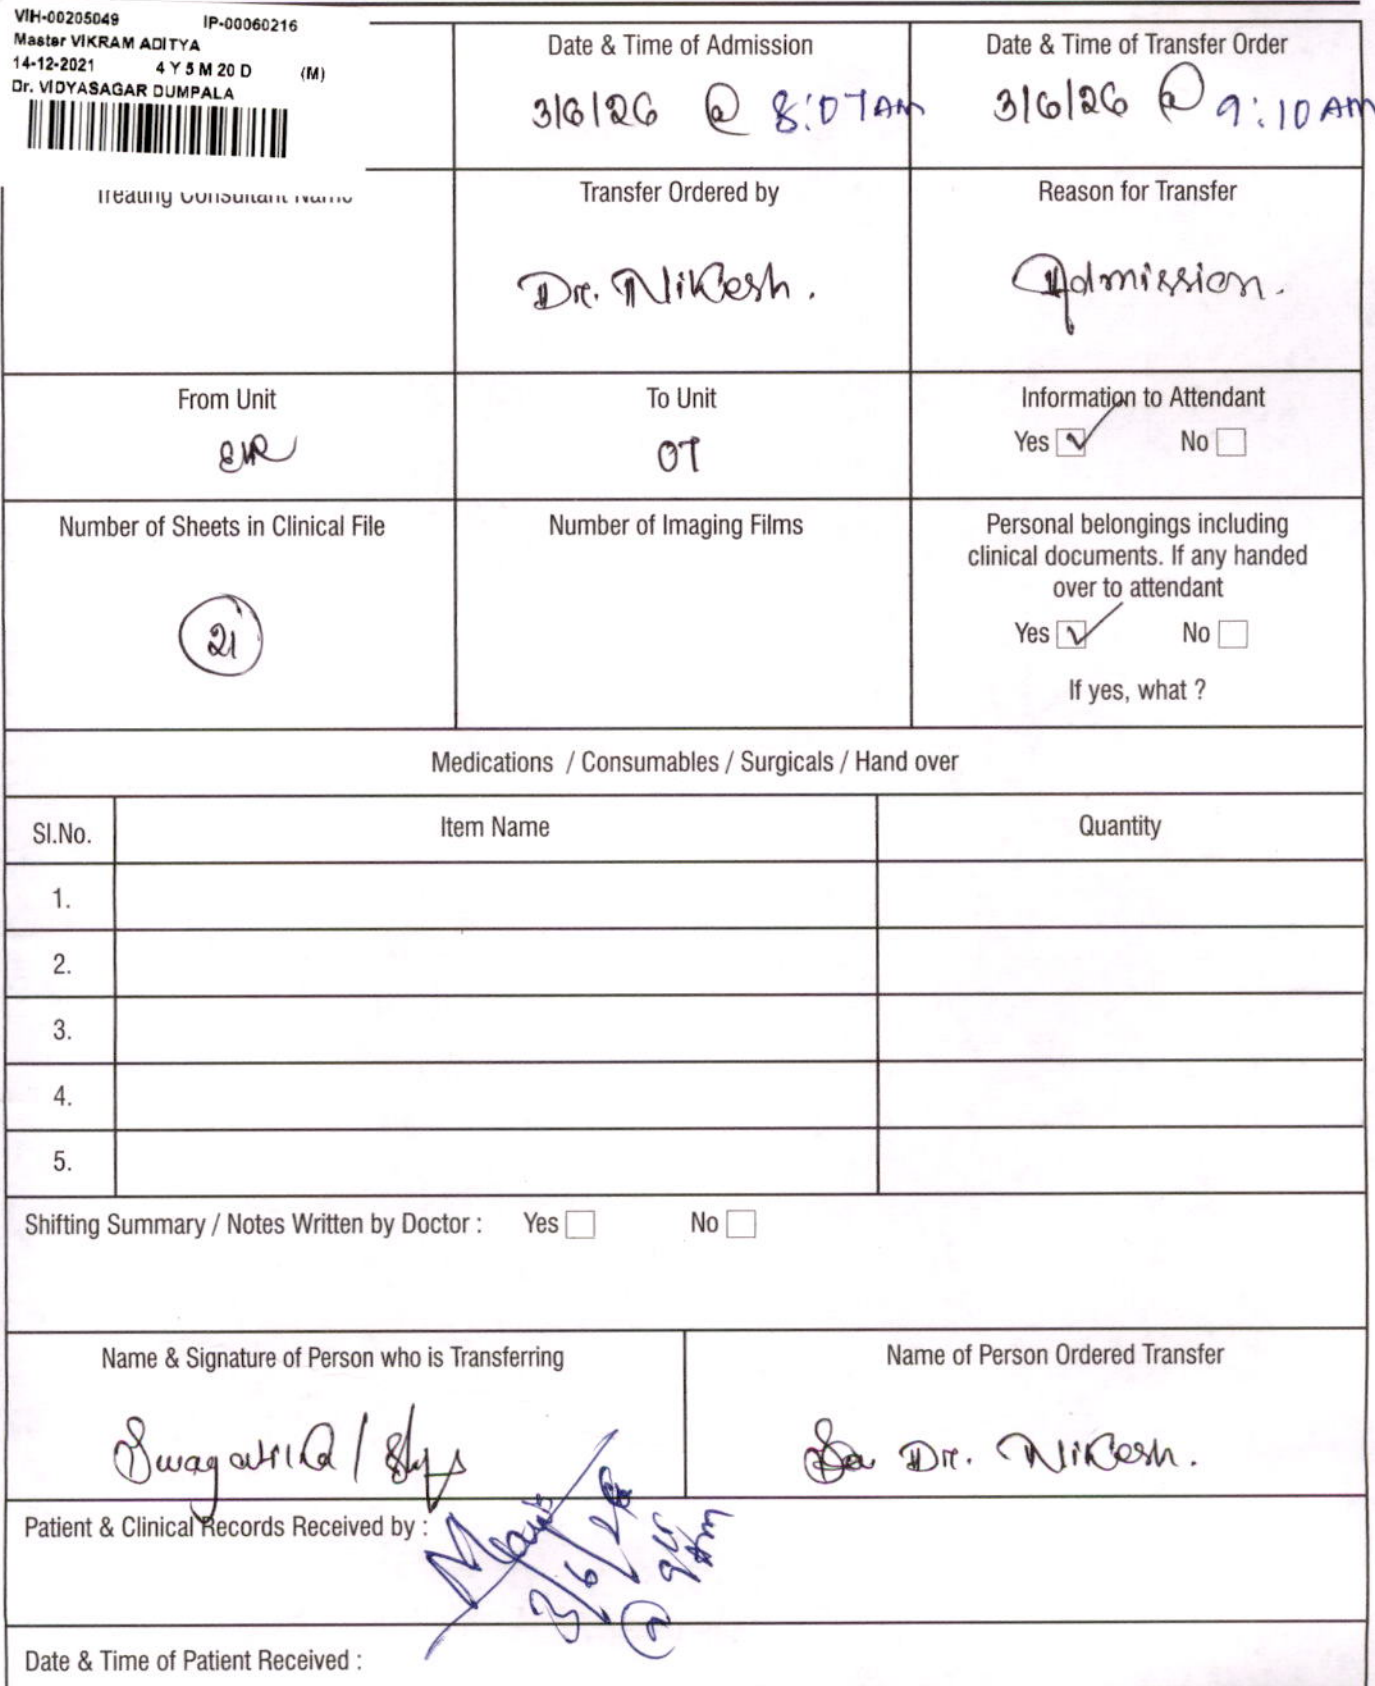 VIH-00205049 IP-00060216
Master VIKRAM ADITYA
14-12-2021 4 Y 5 M 20 D (M)
Dr. VIDYASAGAR DUMPALA
Date & Time of Admission
3/6/26 @ 8:07 AM
Date & Time of Transfer Order
3/6/26 @ 9:10 AM
Treating Consultant Name
Transfer Ordered by
Dr. Nikesh.
Reason for Transfer
Admission.
From Unit
To Unit
OT
Information to Attendant
Yes ✓ No
Number of Sheets in Clinical File
21
Number of Imaging Films
Personal belongings including
clinical documents. If any handed
over to attendant
Yes ✓ No
If yes, what ?
Medications / Consumables / Surgicals / Hand over
Sl.No. Item Name Quantity
1.
2.
3.
4.
5.
Shifting Summary / Notes Written by Doctor : Yes No
Name & Signature of Person who is Transferring
Name of Person Ordered Transfer
Dr. Nikesh.
Patient & Clinical Records Received by :
3/6/26
@
Date & Time of Patient Received :